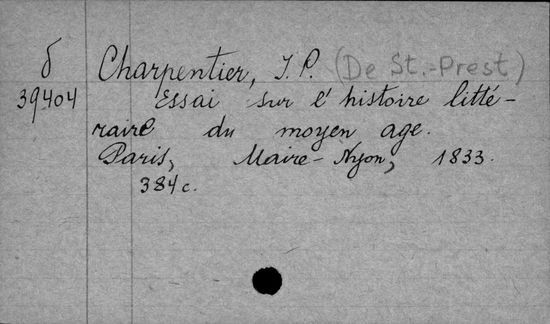 δ Charpentier, J. P. (De St.-Prest)
39404 Essai sur l'histoire litté-
raire du moyen age.
Paris, Maire-Nyon, 1833.
384 c.